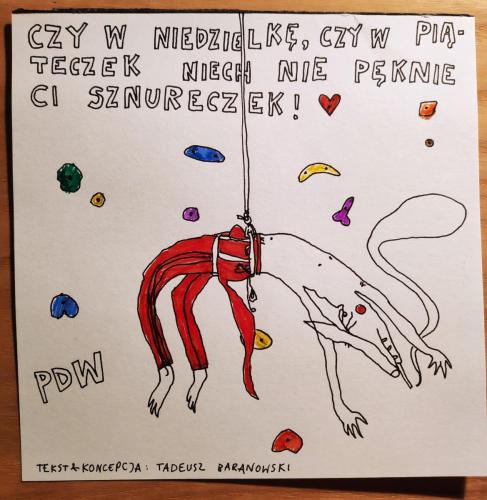 CZY W NIEDZIELKĘ, CZY W PIĄ-
TECZEK NIECH NIE PĘKNIE
CI SZNURECZEK! ♥
PDW
TEKST & KONCEPCJA: TADEUSZ BARANOWSKI